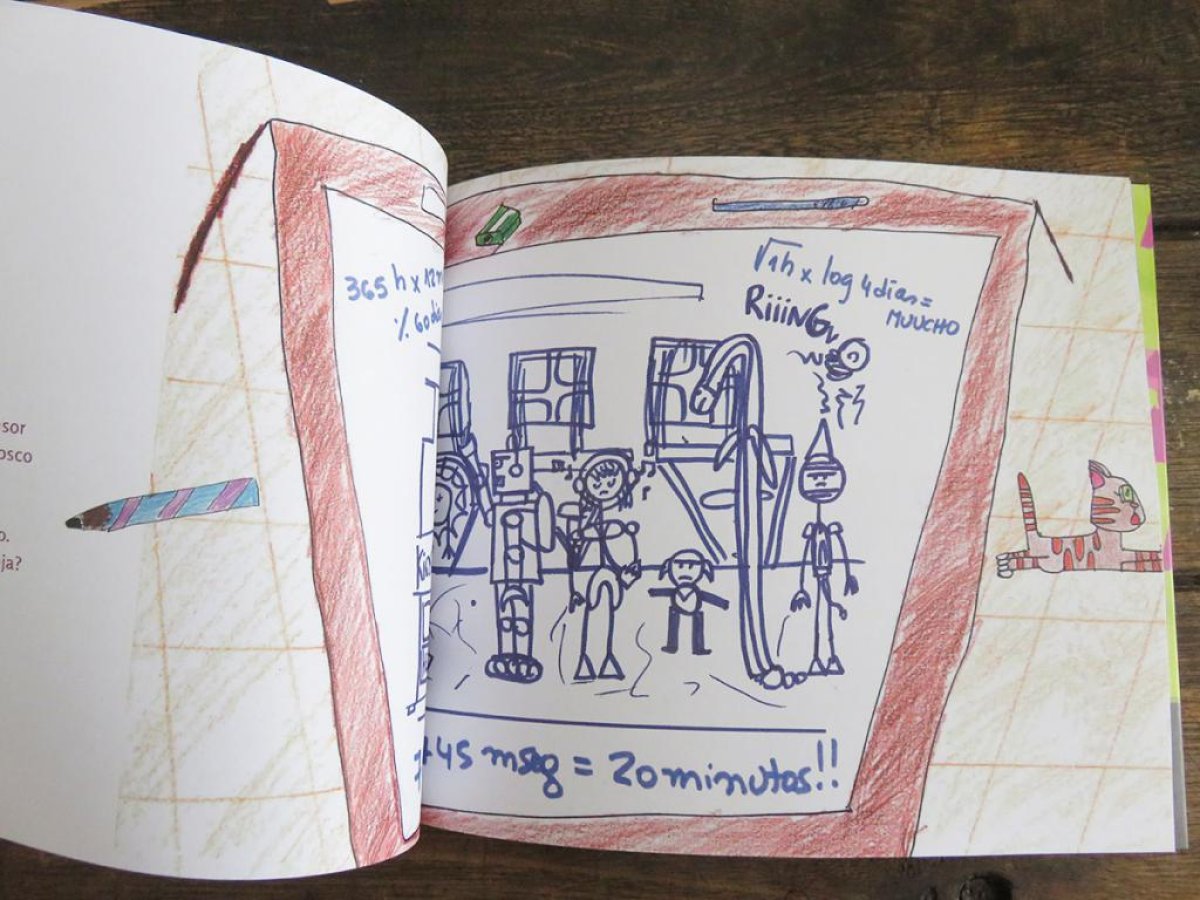 sor
osco
o.
ja?
365 h x 12
% 60 días
√1h x log 4 dias =
MUUCHO
RiiiNG
Kio
+45 mseg = 20 minutos!!